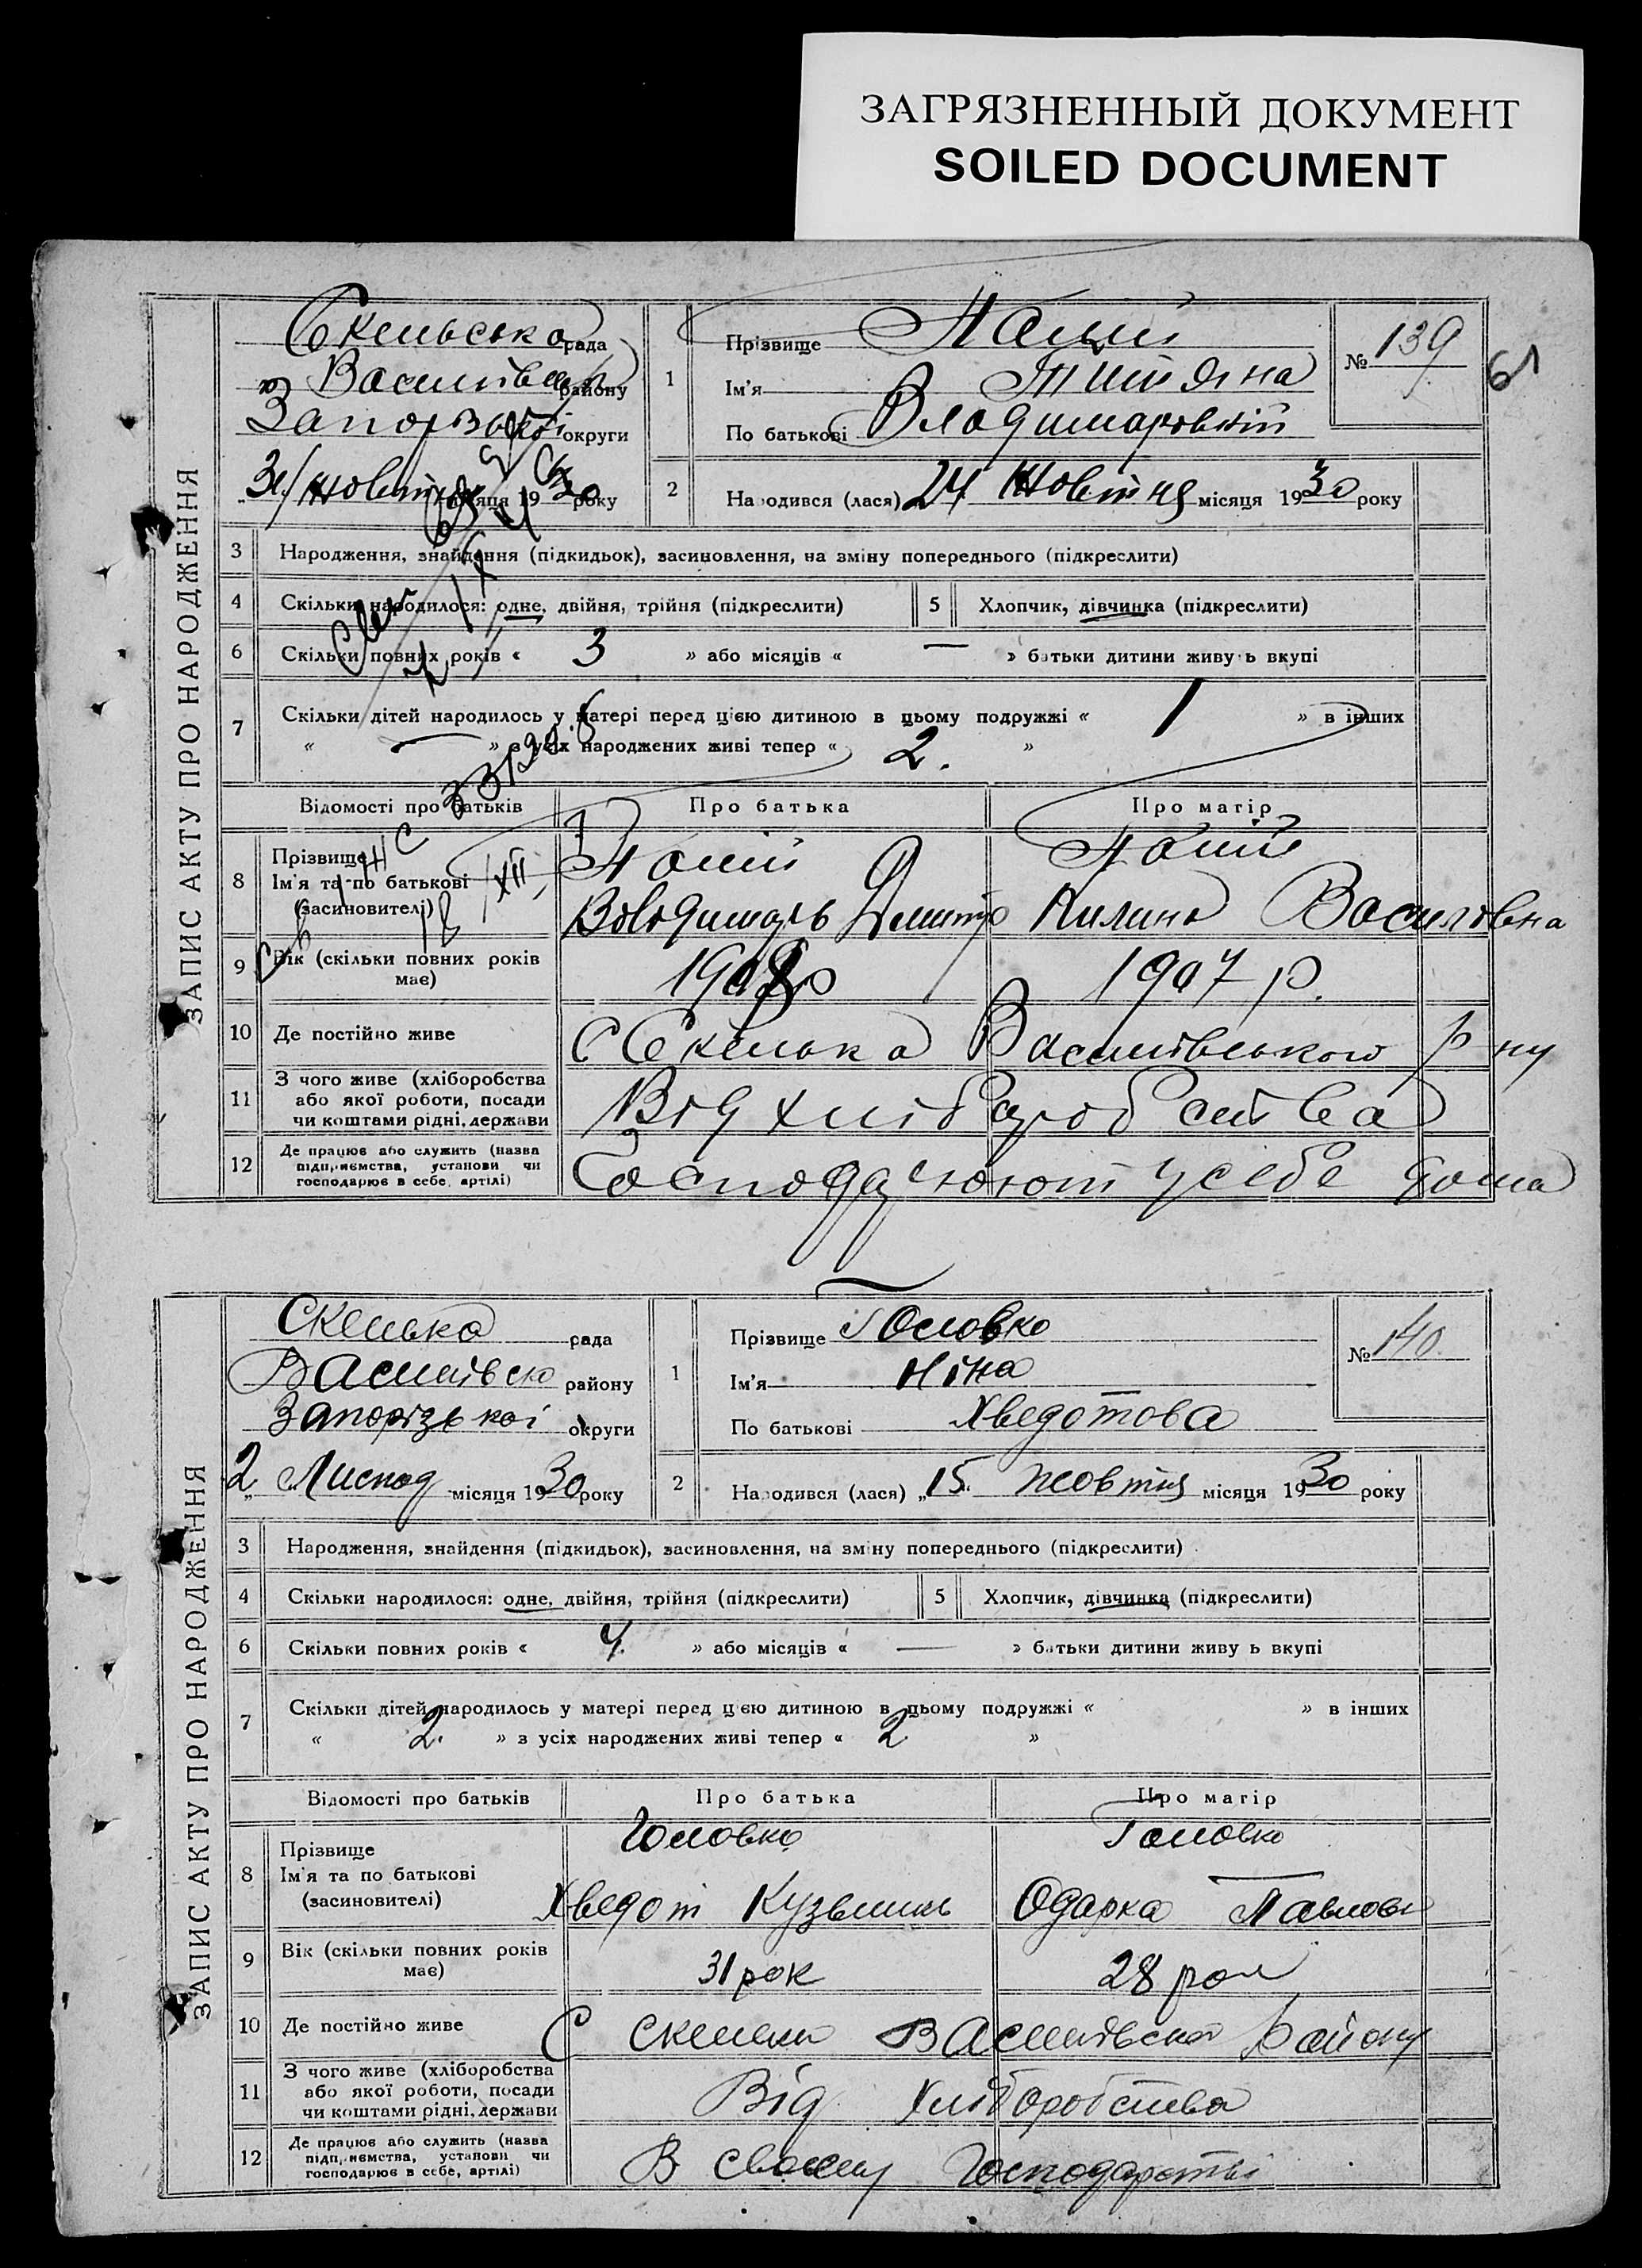 ЗАГРЯЗНЕННЫЙ ДОКУМЕНТ
SOILED DOCUMENT
ЗАПИС АКТУ ПРО НАРОДЖЕННЯ
Скельська рада
району
округи
31 Жовтня місяця 1930 року
1
Прізвище
Ім'я
По батькові
№ 139
61
2
Народився (лася) 24 Жовтня місяця 1930 року
3 Народження, знайдення (підкидьок), засиновлення, на зміну попереднього (підкреслити)
4 Скільки народилося: одне, двійня, трійня (підкреслити)
5 Хлопчик, дівчинка (підкреслити)
6 Скільки повних років « 3 » або місяців « — » батьки дитини живуть вкупі
7 Скільки дітей народилось у матері перед цією дитиною в цьому подружжі « 1 » в інших
« — » з усіх народжених живі тепер « 2. »
Відомості про батьків Про батька Про матір
8 Прізвище
Ім'я та по батькові
(засновителі)
Володимаръ Дмитр Килина Василовна
9 Вік (скільки повних років має) 1907 р.
10 Де постійно живе С Скелька Василівського р-ну
11 З чого живе (хліборобства або якої роботи, посади чи коштами рідні, держави Від хліборобства
12 Де працює або служить (назва підприємства, установи чи господарює в себе, артілі) Господарюют у себе дома
ЗАПИС АКТУ ПРО НАРОДЖЕННЯ
Скелька рада
Василівско району
Запорізькоі округи
2 Листопад місяця 1930 року
1
Прізвище Головко
Ім'я Ніна
По батькові Хведотова
№ 140
2
Народився (лася) „15. жовтня місяця 1930 року
3 Народження, знайдення (підкидьок), засиновлення, на зміну попереднього (підкреслити)
4 Скільки народилося: одне, двійня, трійня (підкреслити)
5 Хлопчик, дівчинка (підкреслити)
6 Скільки повних років « 4. » або місяців « — » батьки дитини живуть вкупі
7 Скільки дітей народилось у матері перед цією дитиною в цьому подружжі « » в інших
« 2. » з усіх народжених живі тепер « 2 »
Відомості про батьків Про батька Про матір
8 Прізвище Головко Головко
Ім'я та по батькові
(засиновителі)
Хведот Кузьмичь Одарка Павловн
9 Вік (скільки повних років має) 31 рок 28 рок
10 Де постійно живе С Скельки Василівской Району
11 З чого живе (хліборобства або якої роботи, посади чи коштами рідні, держави Від Хліборобства
12 Де працює або служить (назва підприємства, установи чи господарює в себе, артілі) В своему Господарстві